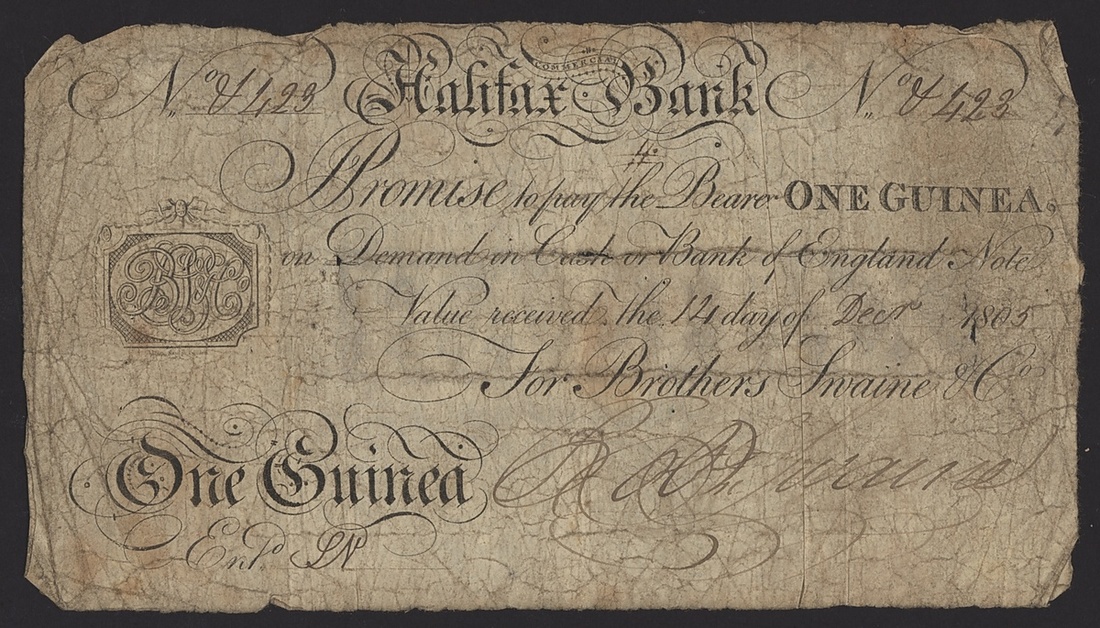 THE COMMERCIAL
No &423 Halifax Bank No &423
I Promise to pay the Bearer ONE GUINEA
on Demand in Cash or Bank of England Note
Value received the 14 day of Decr 1805
For Brothers Swaine & Co
One Guinea
Entd